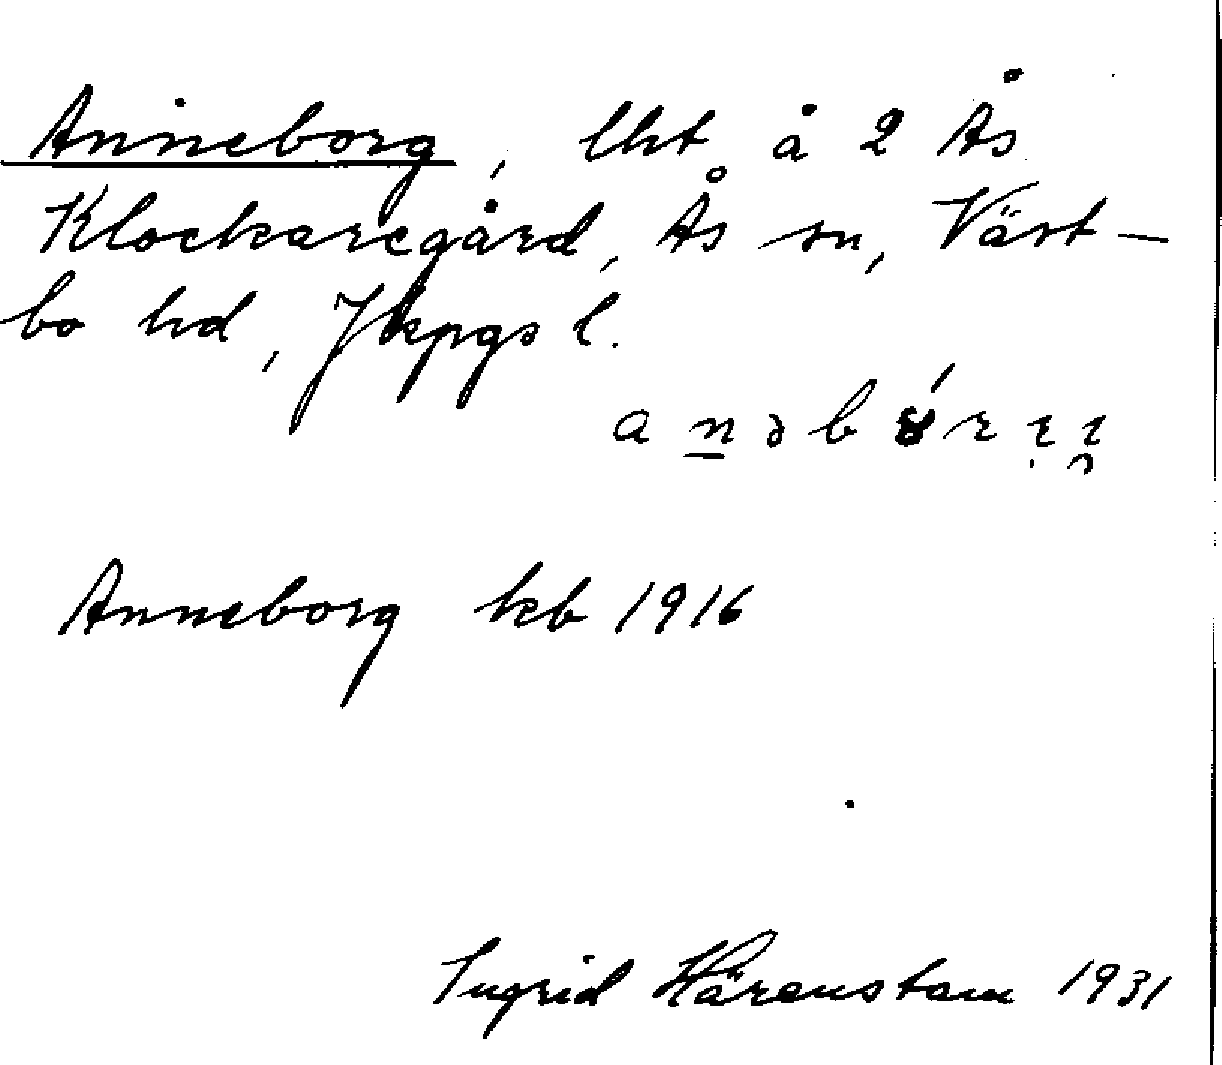 Anneborg, lht å 2 Ås
Klockaregård, Ås sn, Väst-
bo hd, Jkpgs l.
Anneborg kb 1916
Ingrid Härenstam 1931